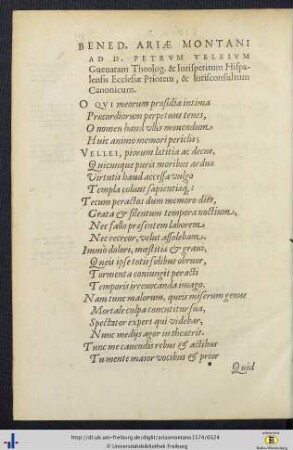 BENED. ARIÆ MONTANI
AD D. PETRVM VELEIVM
Gueuaram Theolog. & Iurisperitum Hispa-
lensis Ecclesiæ Priorem, & Iurisconsultum
Canonicum.
O QVI meorum præsidia intima
Præcordiorum perpetuus tenes,
O nomen haud vllis mouendum
Huic animo memori periclis;
VELLEI, piorum lætitia ac decus,
Quicunque puris moribus ardua
Virtutis haud accessa vulgo
Templa colunt sapientiæq́;:
Tecum peractos dum memoro dies,
Grata & silentum tempora noctium,
Nec fallo præsentem laborem,
Nec recreor, velut assolebam.
Immò dolori, mæstitia & graui,
Queis ipse totis solibus obruor,
Tormenta coniungit peracti
Temporis irreuocanda imago.
Nam tunc malorum, queis miserum genus
Mortale culpa concutitur sua,
Spectator expers qui videbar,
Nunc medijs agor in theatris.
Tunc me cauendis rebus & actibus
Tu mente maior vocibus & prior
Quid
http://dl.ub.uni-freiburg.de/diglit/ariasmontano1574/0324
© Universitätsbibliothek Freiburg